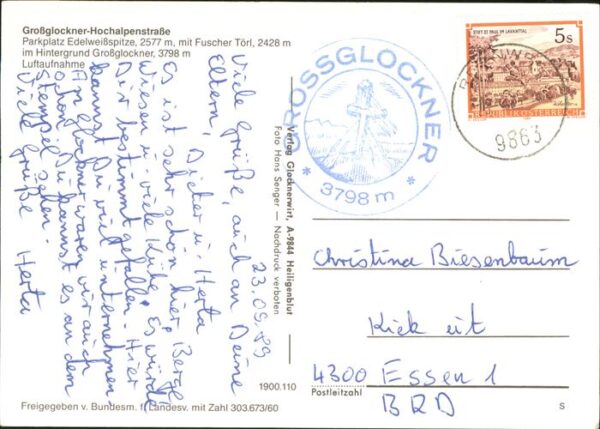 Großglockner-Hochalpenstraße
Parkplatz Edelweißspitze, 2577 m, mit Fuscher Törl, 2428 m
im Hintergrund Großglockner, 3798 m
Luftaufnahme
23.09.89
Viele Grüße, auch an Deine
Eltern, Dieter u. Herta
Es ist sehr schön hier, Berge
Wiesen u. viele Kühe. Es würde
Dir bestimmt gefallen. Hier
kannst Du viel unternehmen.
Am Glockner waren wir auch
schon. Du kannst es an dem
Stempel sehen.
Viele Grüße Herta
Verlag Glocknerwirt, A-9844 Heiligenblut
Foto Hans Senger — Nachdruck verboten
GROSSGLOCKNER
* 3798 m *
STIFT ST. PAUL IM LAVANTTAL
5 S
REPUBLIK ÖSTERREICH
9863
Christina Biesenbaum
Kiek ut
4300 Essen 1
Postleitzahl
BRD
1900.110
Freigegeben v. Bundesm. f. Landesv. mit Zahl 303.673/60
S